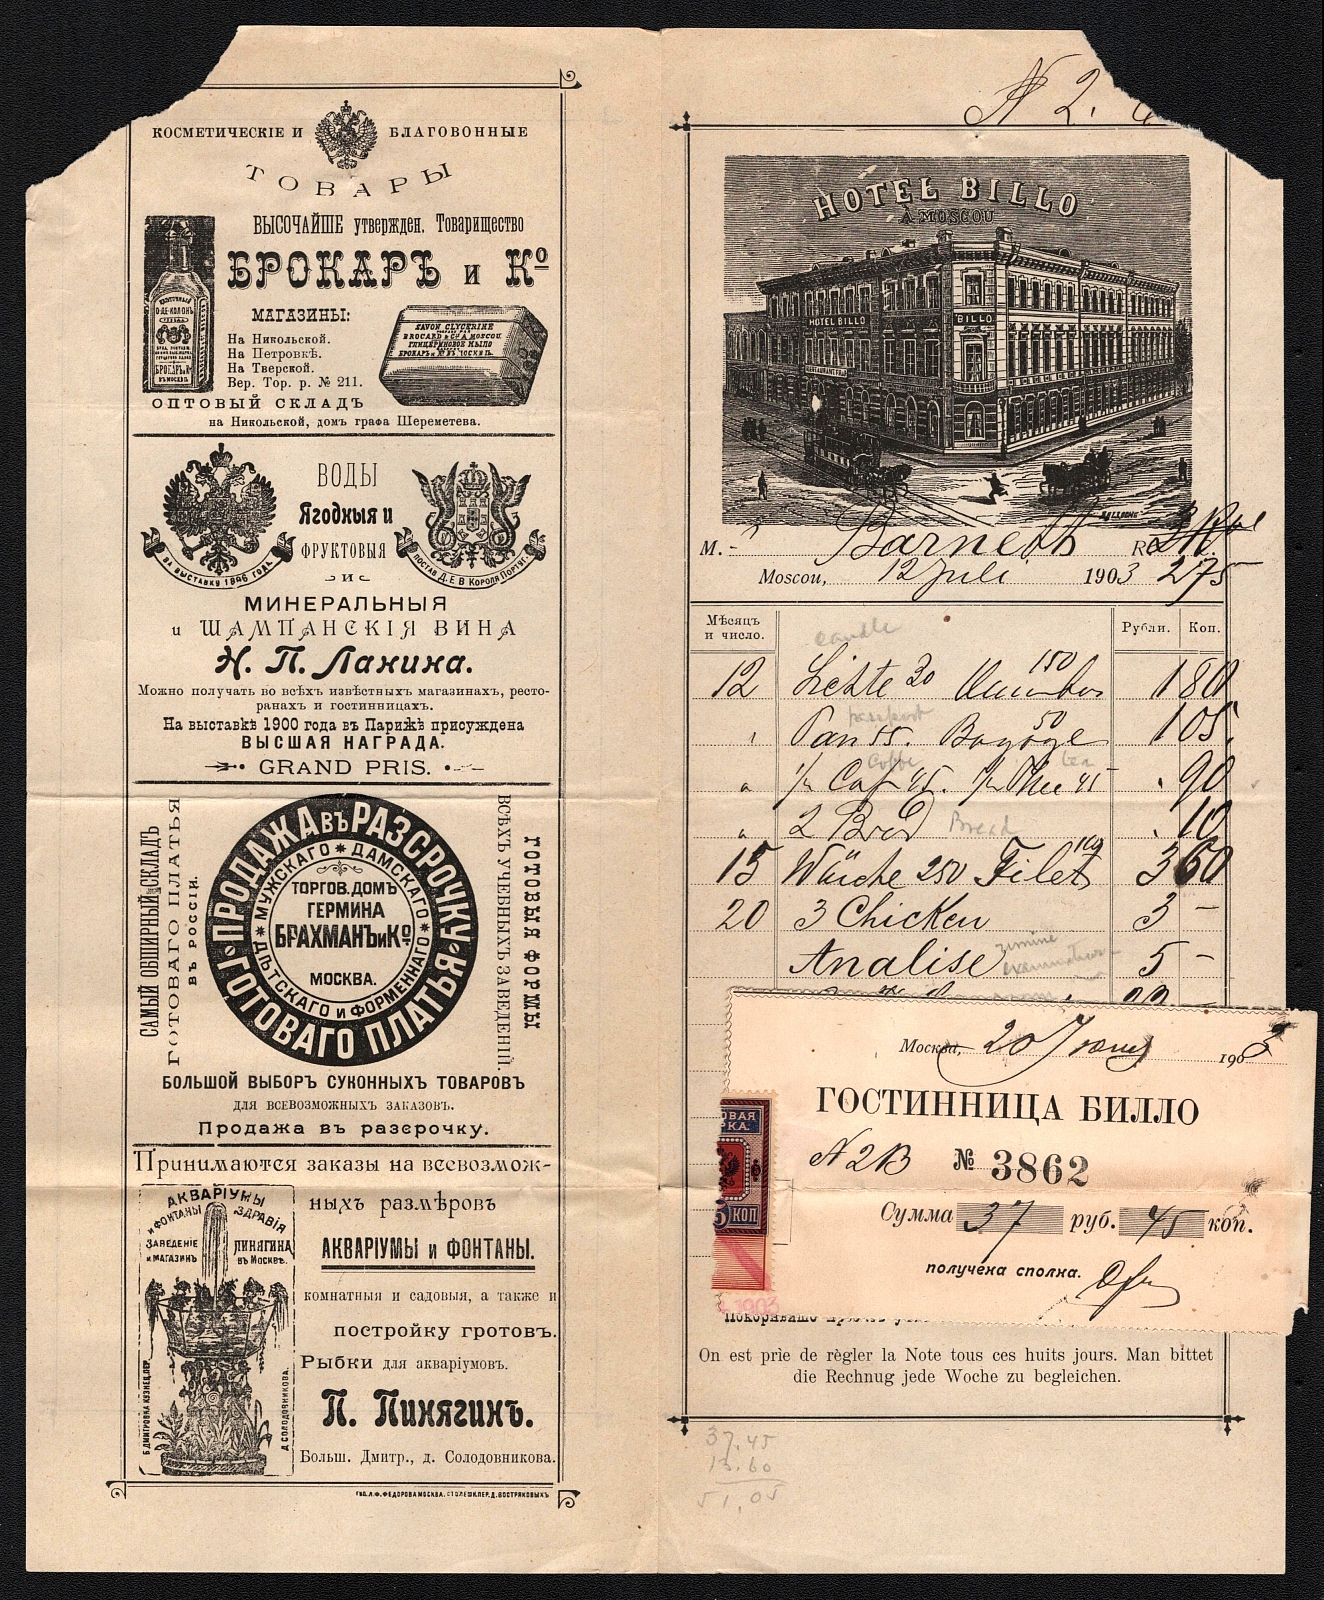 КОСМЕТИЧЕСКІЕ И БЛАГОВОННЫЕ
ТОВАРЫ
ВЫСОЧАЙШЕ утвержден. Товарищество
БРОКАРЪ и Кº
МАГАЗИНЫ:
На Никольской.
На Петровкѣ.
На Тверской.
Вер. Тор. р. № 211.
О-ДЕ-КОЛОНЪ
БРОКАРЪ и Кº
SAVON GLYCERINE
BROCARD & Cº A MOSCOU
ГЛИЦЕРИНОВОЕ МЫЛО
БРОКАРЪ и Кº ВЪ МОСКВѢ
ОПТОВЫЙ СКЛАДЪ
на Никольской, домъ графа Шереметева.
ВОДЫ
Ягодныя и
ФРУКТОВЫЯ
И
ЗА ВЫСТАВКУ 1896 ГОДА
ПОСТАВ. Д. Е. В. КОРОЛЯ ПОРТУГ.
МИНЕРАЛЬНЫЯ
и ШАМПАНСКІЯ ВИНА
Н. П. Ланина.
Можно получать во всѣхъ извѣстныхъ магазинахъ, ресто-
ранахъ и гостинницахъ.
На выставкѣ 1900 года въ Парижѣ присуждена
ВЫСШАЯ НАГРАДА.
GRAND PRIS.
САМЫЙ ОБШИРНЫЙ СКЛАДЪ
ГОТОВАГО ПЛАТЬЯ
ВЪ РОССІИ.
ПРОДАЖА ВЪ РАЗСРОЧКУ
ГОТОВАГО ПЛАТЬЯ
МУЖСКАГО ДАМСКАГО
ДѢТСКАГО И ФОРМЕННАГО
ТОРГОВ. ДОМЪ
ГЕРМИНА
БРАХМАНЪ и Кº
МОСКВА.
ВСѢХЪ УЧЕБНЫХЪ ЗАВЕДЕНІЙ.
ГОТОВЫЯ ФОРМЫ
БОЛЬШОЙ ВЫБОРЪ СУКОННЫХЪ ТОВАРОВЪ
ДЛЯ ВСЕВОЗМОЖНЫХЪ ЗАКАЗОВЪ.
Продажа въ разсрочку.
Принимаются заказы на всевозмож-
ныхъ размѣровъ
АКВАРІУМЫ и ФОНТАНЫ.
комнатныя и садовыя, а также и
постройку гротовъ.
Рыбки для акваріумовъ.
П. Пинягинъ.
Больш. Дмитр., д. Солодовникова.
АКВАРІУМЫ
И ФОНТАНЫ
ЗДРАВІЯ
ЗАВЕДЕНІЕ
И МАГАЗИНЪ
ПИНЯГИНА
ВЪ МОСКВѢ.
Б. ДМИТРОВКА КУЗНЕЦ. ПЕР.
Д. СОЛОДОВНИКОВА.
ТИП. Л. Ф. ФЕДОРОВА МОСКВА. СТОЛЕШК. ПЕР. Д. ВОСТРЯКОВЫХЪ
N 2.
HOTEL BILLO
À MOSCOU
HOTEL BILLO
BILLO
M. Barnett
Moscou, 12 Juli 1903 275
Мѣсяцъ
и число.
Рубли. Коп.
candle
12 Lichte 30 150 1 80
passport
Pass 55. Bagage 50 1 05
Coffe tea
Caf 45. Thee 45 90
2 Brod Bread 10
15 Wäsche 250 Filet 3 60
20 3 Chicken 3 –
urine
examination
Analise 5 –
Москва, 20 Іюля 1903
ГОСТИННИЦА БИЛЛО
N 2B № 3862
Сумма 37 руб. 45 коп.
получена сполна.
ОВАЯ
РКА.
5 КОП
1903
On est prie de règler la Note tous ces huits jours. Man bittet
die Rechnug jede Woche zu begleichen.
37.45
13.60
51,05